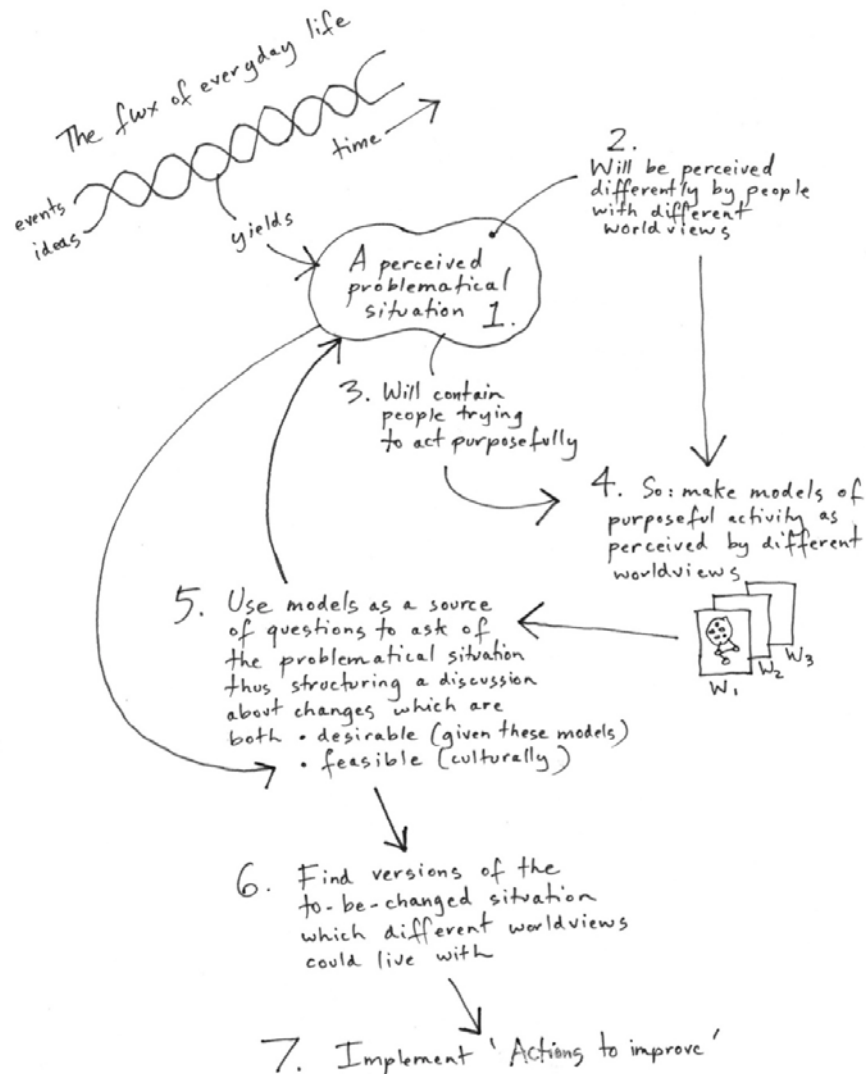 The flux of everyday life
time
events
ideas
yields
A perceived
problematical
situation 1.
2.
Will be perceived
differently by people
with different
worldviews
3. Will contain
people trying
to act purposefully
4. So: make models of
purposeful activity as
perceived by different
worldviews
W1
W2
W3
5. Use models as a source
of questions to ask of
the problematical situation
thus structuring a discussion
about changes which are
both • desirable (given these models)
• feasible (culturally)
6. Find versions of the
to-be-changed situation
which different worldviews
could live with
7. Implement 'Actions to improve'